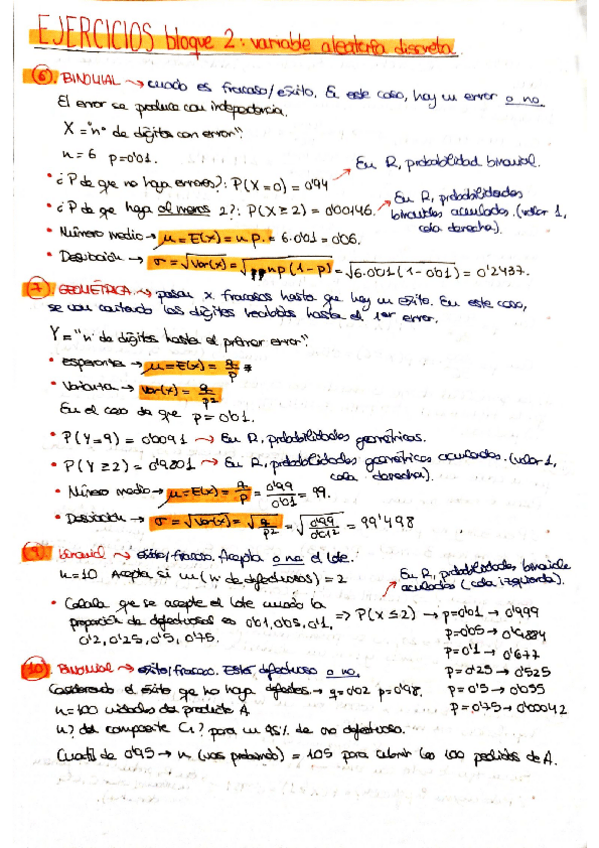 EJERCICIOS bloque 2: variable aleatoria discreta.
6. BINOMIAL → cuando es fracaso/éxito. En este caso, hay un error o no.
El error se produce con independencia.
X = "nº de dígitos con error".
n = 6 p = 0'01.
En R, probabilidad binomial.
• ¿P de que no haya errores?: P(X=0) = 0'94
• ¿P de que haya al menos 2?: P(X ≥ 2) = 0'00146.
En R, probabilidades
binomiales acumuladas. (valor 1,
cola derecha).
• Número medio → μ = E(x) = n p. = 6·0'01 = 0'06.
• Desviación → σ = √Var(x) = √np(1-p) = √6·0'01(1-0'01) = 0'2437.
7. GEOMÉTRICA. → pasan x fracasos hasta que hay un éxito. En este caso,
se van contando los dígitos recibidos hasta el 1er error.
Y = "nº de dígitos hasta el primer error".
• esperanza → μ = E(x) = q/p *
• Varianza → Var(x) = q/p²
En el caso de que p = 0'01.
• P(Y=9) = 0'0091 → En R, probabilidades geométricas.
• P(Y ≥ 2) = 0'9801 → En R, probabilidades geométricas acumuladas. (valor 1,
cola derecha).
• Número medio → μ = E(x) = q/p = 0'99/0'01 = 99.
• Desviación → σ = √Var(x) = √q/p² = √0'99/0'01² = 99'498
9. binomial → éxito/fracaso. Acepta o no el lote.
n = 10 Acepta si m (nº de defectuosos) = 2
En R, probabilidades binomiale
acumuladas (cola izquierda).
• Calcula que se acepte el lote cuando la
proporción de defectuosos es 0'01, 0'05, 0'1,
0'2, 0'25, 0'5, 0'75.
⇒ P(X ≤ 2) → p=0'01 → 0'999
p=0'05 →
p=0'1 → 0'677
p=0'25 → 0'525
p=0'5 → 0'055
p=0'75 → 0'00042
10. BINOMIAL → éxito/fracaso. Estar defectuoso o no.
Considerando el éxito que no haya defectos. → q=0'02 p=0'98.
n=100 unidades del producto A
n? del componente C1? para un 95% de no defectuoso.
Cuantil de 0'95 → n (vas probando) = 105 para cubrir los 100 pedidos de A.